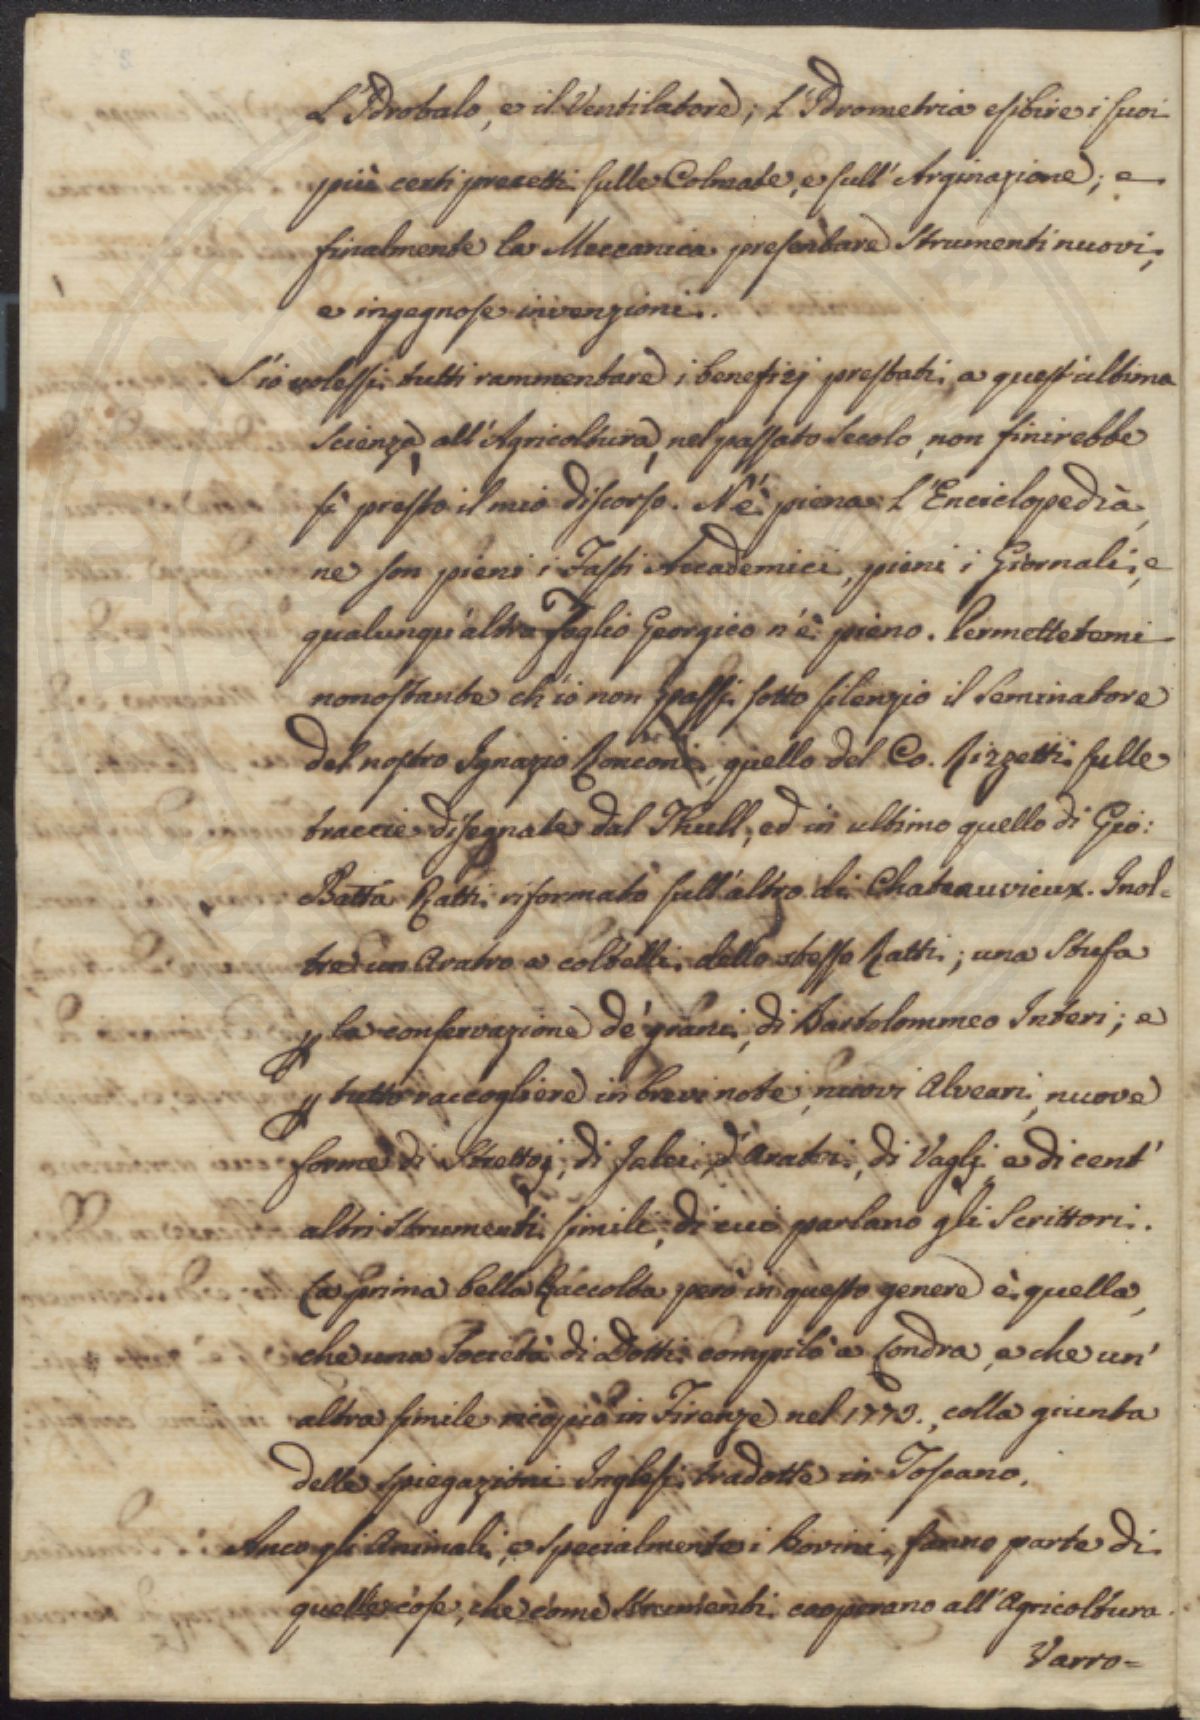 L'Idrobalo, e il Ventilatore; l'Idrometria esibire i suoi
più certi precetti sulle Colmate, e sull'Arginazione; e
finalmente la Meccanica presentare Strumenti nuovi,
e ingegnose invenzioni.
S'io volessi tutti rammentare i benefizj prestati a quest'ultima
Scienza, all'Agricoltura, nel passato Secolo, non finirebbe
sì presto il mio discorso. N'è piena l'Enciclopedìa,
ne son pieni i Fasti Accademici, pieni i Giornali, e
qualunqu'altro foglio Georgico n'è pieno. Permettetemi
nonostante ch'io non passi sotto silenzio il Seminatore
del nostro Ignazio Ronconi, quello del Co. Rizzetti sulle
traccie disegnate dal Thull, ed in ultimo quello di Gio:
Batta Ratti riformato sull'altro di Chateauvieux. Inol=
tre un Aratro a coltelli dello stesso Ratti; una Stufa
p la conservazione de' grani, di Bartolommeo Interi; e
p tutto raccogliere in brevi note, nuovi Alveari, nuove
forme di Strettoj, di falci, d'Aratri, di Vagli e di cent'
altri Strumenti simili, di cui parlano gli Scrittori.
La prima bella Raccolta però in questo genere è quella,
che una Società di Dotti compilò a Londra, e che un'
altra simile ricopiò in Firenze nel 1773., colla giunta
delle spiegazioni Inglesi tradotte in Toscano.
Anco gli Animali, e specialmente i Bovini, fanno parte di
quelle cose, che come Strumenti cooperano all'Agricoltura.
Varro=